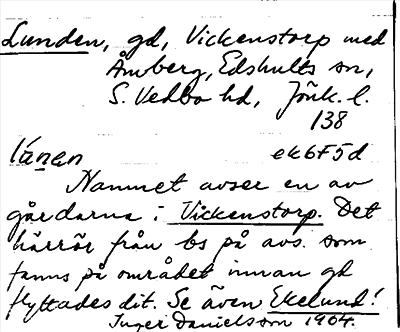 Lunden, gd, Vickenstorp med
Åmberg, Edshults sn,
S. Vedbo hd, Jönk. l.
138
lánan ek6F5d
Namnet avser en av
gårdarna i Vickenstorp. Det
härrör från bs på avs. som
fanns på området innan gd
flyttades dit. Se även Ekelund!
Inger Danielsson 1964.